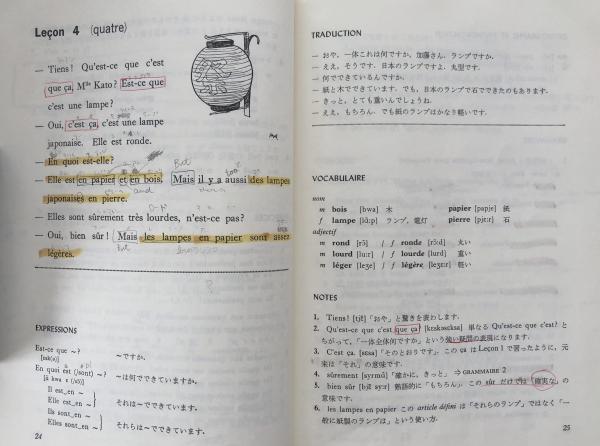 Leçon 4 (quatre)
— Tiens! Qu'est-ce que c'est
que ça, Mlle Kato? Est-ce que
c'est une lampe?
— Oui, c'est ça, c'est une lampe
japonaise. Elle est ronde.
— En quoi est-elle?
— Elle est en papier et en bois. Mais il y a aussi des lampes
japonaises en pierre.
— Elles sont sûrement très lourdes, n'est-ce pas?
— Oui, bien sûr! Mais les lampes en papier sont assez
légères.
But
and
But
EXPRESSIONS
Est-ce que ~?
~ですか。
En quoi est (/sont) ~?
~は何でできていますか。
Il est en ~
Elle est en ~
それは~でできています。
Ils sont en ~
Elles sont en ~
それらは~でできています。
24
TRADUCTION
— おや,一体これは何ですか,加藤さん,ランプですか。
— ええ,そうです.日本のランプですよ.丸型です.
— 何でできているんですか。
— 紙と木でできています.でも,日本のランプで石でできたのもあります.
— きっと,とても重いんでしょうね.
— ええ,もちろん.でも紙のランプはかなり軽いです.
VOCABULAIRE
nom
m bois [bwa] 木 papier [papje] 紙
f lampe [lɑ̃:p] ランプ,電灯 pierre [pjɛ:r] 石
adjectif
m rond [rɔ̃] / f ronde [rɔ̃:d] 丸い
m lourd [lu:r] / f lourde [lurd] 重い
m léger [leʒe] / f légère [leʒɛ:r] 軽い
NOTES
1. Tiens! [tjɛ̃] 「おや」と驚きを表わします.
2. Qu'est-ce que c'est que ça? [kɛskəsɛksa] 単なる Qu'est-ce que c'est? と
ちがって,「一体全体何ですか」という強い疑問の表現になります.
3. C'est ça. [sɛsa] 「そのとおりです」この ça は Leçon 1 で習ったように,元
来は「それ」の意味です.
4. sûrement [syrmɑ̃] 「確かに,きっと」 ⇒ GRAMMAIRE 2
5. bien sûr [bjɛ̃ sy:r] 熟語的に「もちろん」この sûr だけでは「確実な」の
意味です.
6. les lampes en papier この article défini は「それらのランプ」ではなく「一
般に紙製のランプは」という使い方.
25